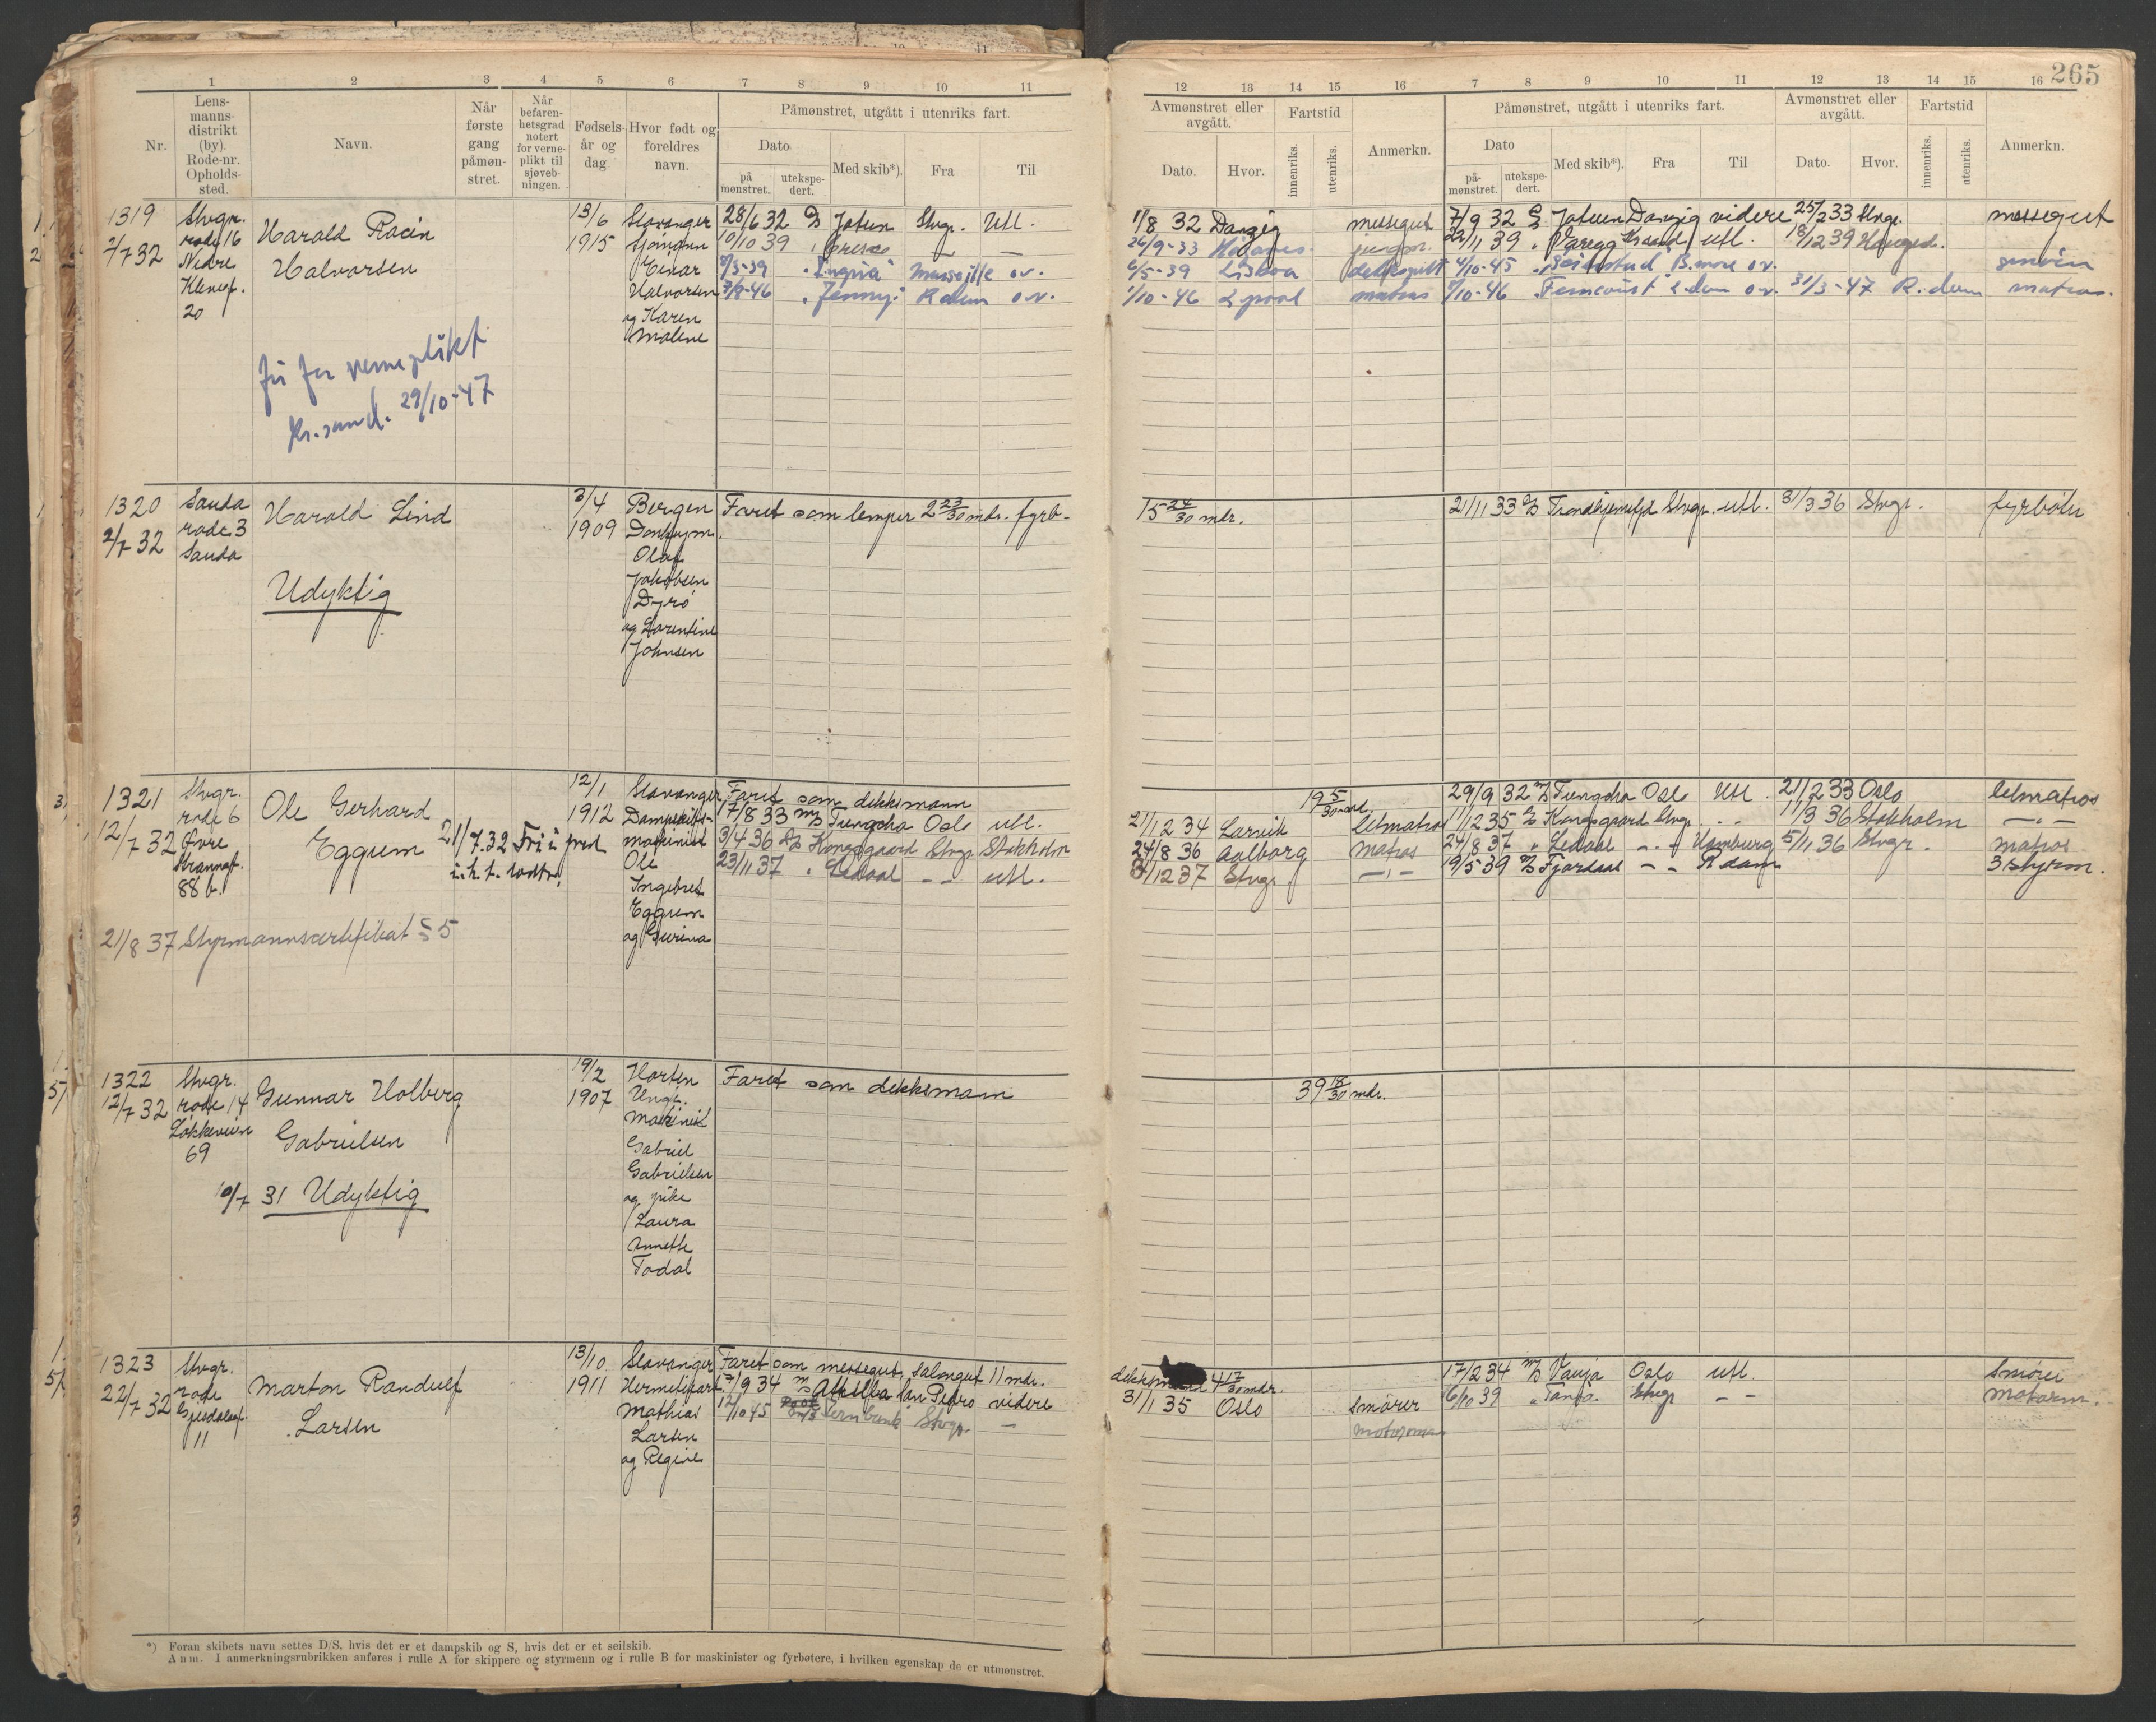 265
1 2 3 4 5 6 7 8 9 10 11
12 13 14 15 16 7 8 9 10 11 12 13 14 15 16
Nr.
Lens-
manns-
distrikt
(by).
Rode-nr.
Opholds-
sted.
Navn.
Når
første
gang
påmøn-
stret.
Når
befaren-
hetsgrad
notert
for verne-
plikt til
sjøveb-
ningen.
Fødsels-
år og
dag.
Hvor født og
foreldres
navn.
Påmønstret, utgått i utenriks fart.
Dato
på
mønstret.
utekspe-
dert.
Med skib*).
Fra
Til
Avmønstret eller
avgått.
Dato.
Hvor.
Fartstid
innenriks.
utenriks.
Anmerkn.
Påmønstret, utgått i utenriks fart.
Dato
på-
mønstret.
utekspe-
dert.
Med skib*).
Fra
Til
Avmønstret eller
avgått.
Dato.
Hvor.
Fartstid
innenriks.
utenriks.
Anmerkn.
1319
2/7 32
Stvgr.
rode 16
Nedre
20
Harald
Halvorsen
13/6
1915
Stavanger
Sjømann
Einar
Halvorsen
og Karen
Malene
28/6 32 Jotun Stvgr. Utl.
10/10 39
"Ingria" o.v.
7/8-46 "Jenny" R.dam o.v.
1/8 32 Danzig messegut 7/9 32 Jotun Danzig videre 25/2 33 Stvgr. messegut
26/9-33 22/11 39 Varegg Kr.sand utl. 18/12 39 Hauged.
6/5-39 Lisboa 4/10-45 B.more o.v.
1/10-46 L.pool matros /10-46 o.v. 31/3-47 R.dam matros.
for verneplikt
Kr.sand. 29/10-47
1320
2/7 32
Sauda
rode 3
Sauda
Harald Lind
Udyktig
3/4
1909
Bergen
Olaf
Jakobsen
Dyrø
og Larentine
Johnsen
Faret som lemper 2 23/30 mdr. fyrb.
15 24/30 mdr.
21/11 33 Trondhjemsfjd Stvgr. utl. 31/3 36 Stvgr. fyrbøter
1321
12/7 32
Stvgr.
rode 6
Øvre
88 b.
Ole Gerhard
Eggum
21/7.32 Fri i fred
i.h.t. lodtr.
21/8 37 Styrmannscertifikat § 5
12/1
1912
Stavanger
Dampskibs-
maskinist
Ole
Ingebret
Eggum
og Gurina
Faret som dekksmann
17/8 33 M/S Tungsha Oslo utl.
3/4 36 D/S Kongsgaard Stvgr. Stokholm
23/11 37 " Ledaal – – utl.
19 5/30 mdr.
29/9 32 M/S Tungsha Oslo Utl. 21/2 33 Oslo letmatros
21/12 34 Larvik Letmatros 11/12 35 Kongsgaard Stvgr. – – 11/3 36 Stokholm –"–
24/8 36 Aalborg Matros 24/8 37 " Ledaal – – Hamburg 5/11 36 Stvgr. matros
31/12 37 Stvgr. –"– 19/5-39 M/S Fjordaas – – R.dam 3 styrm.
1322
12/7 32
Stvgr.
rode 14
Løkkeveien
69
Gunnar Holberg
Gabrielsen
10/7 31 Udyktig
19/2
1907
Horten
Ungk.
Maskinist
Gabriel
Gabrielsen
og pike
Laura
Annette
Todal
Faret som dekksmann
39 18/30 mdr.
1323
22/7 32
Stvgr.
rode
11
Marton Randulf
Larsen
13/10
1911
Stavanger
Hermetikarb.
Mathias
Larsen
og Regine
Faret som messegut, salongut 11 mdr.
7/9 34 M/S Attilla San Pedro videre
12/10 45 Fernbank Stvgr. –
4 17/30 mdr.
17/2 34 M/S Vanja Oslo utl. Smører
3/11 35 Oslo Smører 6/10 39 " Tanja. Stvgr. – – Motorm.
motormann
*) Foran skibets navn settes D/S, hvis det er et dampskib og S, hvis det er et seilskib.
Anm. I anmerkningsrubrikken anføres i rulle A for skippere og styrmenn og i rulle B for maskinister og fyrbøtere, i hvilken egenskap de er utmønstret.